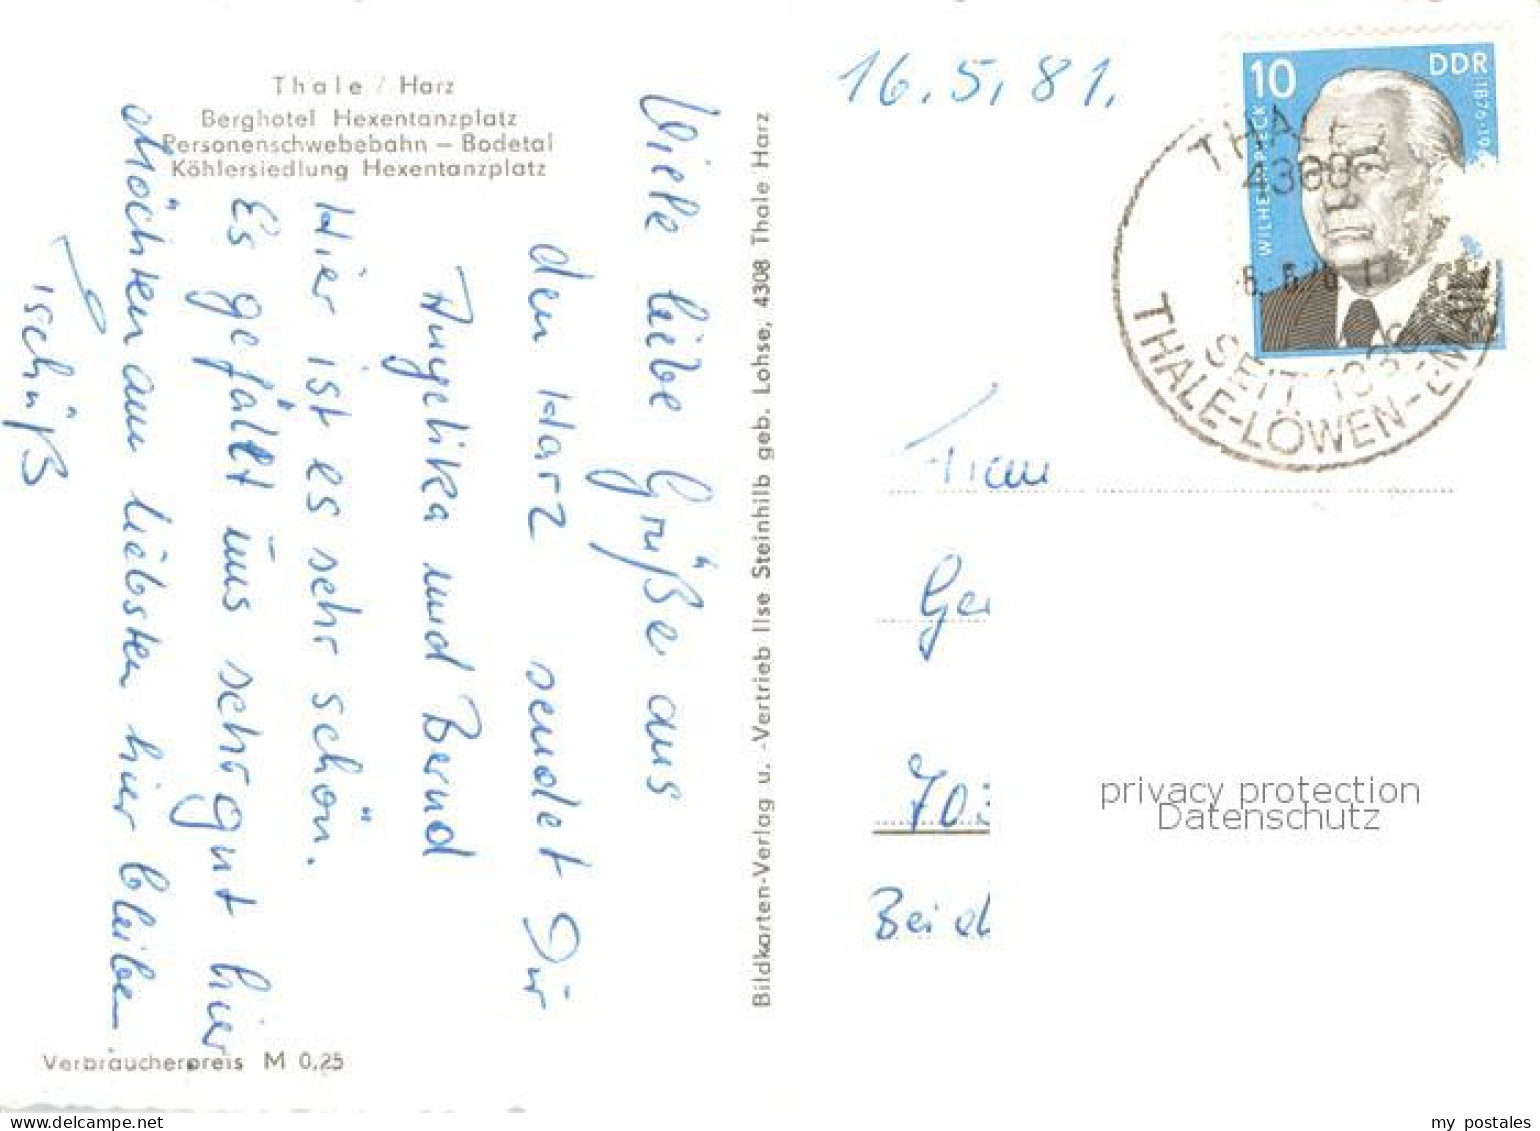 Thale / Harz
Berghotel Hexentanzplatz
Personenschwebebahn – Bodetal
Köhlersiedlung Hexentanzplatz
Viele liebe Grüße aus
den Harz sendet Dir
Angelika und Bernd
Hier ist es sehr schön.
Es gefällt uns sehr gut hier
Möchten am liebsten hier bleiben.
Tschüß
Verbraucherpreis M 0,25
Bildkarten-Verlag u. -Vertrieb Ilse Steinhilb geb. Lohse, 4308 Thale Harz
16.5.81.
10 DDR
WILHELM PIECK
THALE
SEIT
THALE-LÖWEN-EM
Frau
Ge
70
Bei d
privacy protection
Datenschutz
www.delcampe.net
my_postales